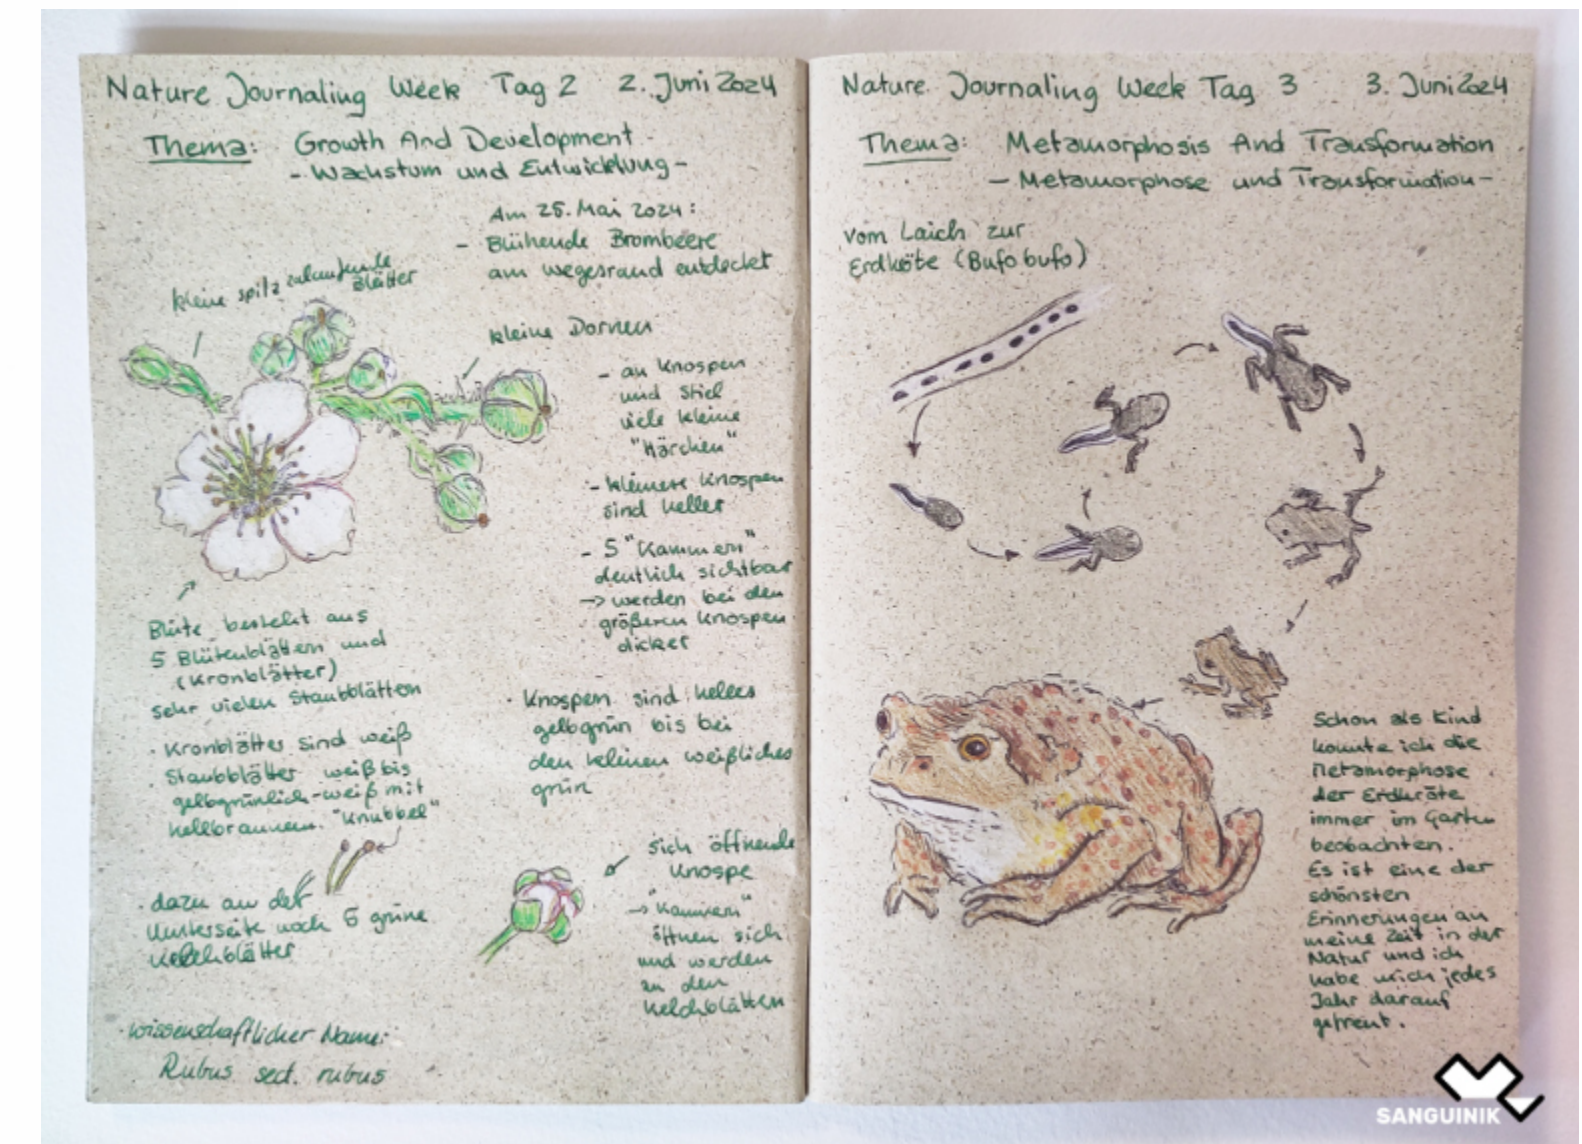 Nature Journaling Week Tag 2 2. Juni 2024
Thema: Growth And Development
- Wachstum und Entwicklung -
Am 25. Mai 2024:
- Blühende Brombeere
am Wegesrand entdeckt
kleine spitz zulaufende
Blätter
kleine Dornen
- an Knospen
und Stiel
viele kleine
"Härchen"
- kleinere Knospen
sind heller
- 5 "Kammern"
deutlich sichtbar
-> werden bei den
größeren Knospen
dicker
Blüte besteht aus
5 Blütenblättern und
(Kronblätter)
sehr vielen Staubblätten
· Kronblätter sind weiß
· Staubblätter weiß bis
gelbgrünlich-weiß mit
hellbraunem "Knubbel"
· dazu an der
Unterseite noch 5 grüne
Kelchblätter
· Knospen sind helles
gelbgrün bis bei
den kleinen weißliches
grün
sich öffnende
Knospe
-> "Kammern"
öffnen sich
und werden
zu den
Kelchblätten
· Wissenschaftlicher Name:
Rubus sect. rubus
Nature Journaling Week Tag 3 3. Juni 2024
Thema: Metamorphosis And Transformation
- Metamorphose und Transformation -
Vom Laich zur
Erdköte (Bufo bufo)
Schon als Kind
konnte ich die
Metamorphose
der Erdkröte
immer im Garten
beobachten.
Es ist eine der
schönsten
Erinnerungen an
meine Zeit in der
Natur und ich
habe mich jedes
Jahr darauf
gefreut.
SANGUINIK